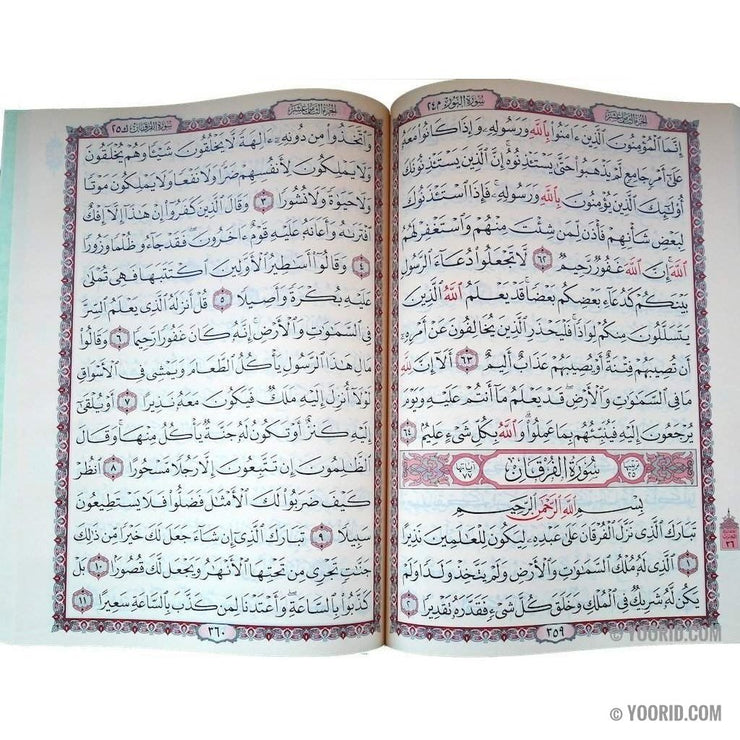 سورة النور ٢٤
الجزء الثامن عشر
إِنَّمَا ٱلْمُؤْمِنُونَ ٱلَّذِينَ ءَامَنُوا۟ بِٱللَّهِ وَرَسُولِهِۦ وَإِذَا كَانُوا۟ مَعَهُۥ
عَلَىٰٓ أَمْرٍ جَامِعٍ لَّمْ يَذْهَبُوا۟ حَتَّىٰ يَسْتَـْٔذِنُوهُ ۚ إِنَّ ٱلَّذِينَ يَسْتَـْٔذِنُونَكَ
أُو۟لَـٰٓئِكَ ٱلَّذِينَ يُؤْمِنُونَ بِٱللَّهِ وَرَسُولِهِۦ ۚ فَإِذَا ٱسْتَـْٔذَنُوكَ
لِبَعْضِ شَأْنِهِمْ فَأْذَن لِّمَن شِئْتَ مِنْهُمْ وَٱسْتَغْفِرْ لَهُمُ
ٱللَّهَ ۚ إِنَّ ٱللَّهَ غَفُورٌ رَّحِيمٌ ٦٢ لَّا تَجْعَلُوا۟ دُعَآءَ ٱلرَّسُولِ
بَيْنَكُمْ كَدُعَآءِ بَعْضِكُم بَعْضًا ۚ قَدْ يَعْلَمُ ٱللَّهُ ٱلَّذِينَ
يَتَسَلَّلُونَ مِنكُمْ لِوَاذًا ۚ فَلْيَحْذَرِ ٱلَّذِينَ يُخَالِفُونَ عَنْ أَمْرِهِۦٓ
أَن تُصِيبَهُمْ فِتْنَةٌ أَوْ يُصِيبَهُمْ عَذَابٌ أَلِيمٌ ٦٣ أَلَآ إِنَّ لِلَّهِ
مَا فِى ٱلسَّمَـٰوَٰتِ وَٱلْأَرْضِ ۖ قَدْ يَعْلَمُ مَآ أَنتُمْ عَلَيْهِ وَيَوْمَ
يُرْجَعُونَ إِلَيْهِ فَيُنَبِّئُهُم بِمَا عَمِلُوا۟ ۗ وَٱللَّهُ بِكُلِّ شَىْءٍ عَلِيمٌ ٦٤
ترتيبها ٢٥ سُورَةُ الفُرْقَانِ آياتها ٧٧
بِسْمِ ٱللَّهِ ٱلرَّحْمَـٰنِ ٱلرَّحِيمِ
تَبَارَكَ ٱلَّذِى نَزَّلَ ٱلْفُرْقَانَ عَلَىٰ عَبْدِهِۦ لِيَكُونَ لِلْعَـٰلَمِينَ نَذِيرًا
١ ٱلَّذِى لَهُۥ مُلْكُ ٱلسَّمَـٰوَٰتِ وَٱلْأَرْضِ وَلَمْ يَتَّخِذْ وَلَدًا وَلَمْ
يَكُن لَّهُۥ شَرِيكٌ فِى ٱلْمُلْكِ وَخَلَقَ كُلَّ شَىْءٍ فَقَدَّرَهُۥ تَقْدِيرًا ٢
٣٥٩
سورة الفرقان ٢٥
الجزء الثامن عشر
وَٱتَّخَذُوا۟ مِن دُونِهِۦٓ ءَالِهَةً لَّا يَخْلُقُونَ شَيْـًٔا وَهُمْ يُخْلَقُونَ
وَلَا يَمْلِكُونَ لِأَنفُسِهِمْ ضَرًّا وَلَا نَفْعًا وَلَا يَمْلِكُونَ مَوْتًا
وَلَا حَيَوٰةً وَلَا نُشُورًا ٣ وَقَالَ ٱلَّذِينَ كَفَرُوٓا۟ إِنْ هَـٰذَآ إِلَّآ إِفْكٌ
ٱفْتَرَىٰهُ وَأَعَانَهُۥ عَلَيْهِ قَوْمٌ ءَاخَرُونَ ۖ فَقَدْ جَآءُو ظُلْمًا وَزُورًا
٤ وَقَالُوٓا۟ أَسَـٰطِيرُ ٱلْأَوَّلِينَ ٱكْتَتَبَهَا فَهِىَ تُمْلَىٰ
عَلَيْهِ بُكْرَةً وَأَصِيلًا ٥ قُلْ أَنزَلَهُ ٱلَّذِى يَعْلَمُ ٱلسِّرَّ
فِى ٱلسَّمَـٰوَٰتِ وَٱلْأَرْضِ ۚ إِنَّهُۥ كَانَ غَفُورًا رَّحِيمًا ٦ وَقَالُوا۟
مَالِ هَـٰذَا ٱلرَّسُولِ يَأْكُلُ ٱلطَّعَامَ وَيَمْشِى فِى ٱلْأَسْوَاقِ ۙ
لَوْلَآ أُنزِلَ إِلَيْهِ مَلَكٌ فَيَكُونَ مَعَهُۥ نَذِيرًا ٧ أَوْ يُلْقَىٰٓ
إِلَيْهِ كَنزٌ أَوْ تَكُونُ لَهُۥ جَنَّةٌ يَأْكُلُ مِنْهَا ۚ وَقَالَ
ٱلظَّـٰلِمُونَ إِن تَتَّبِعُونَ إِلَّا رَجُلًا مَّسْحُورًا ٨ ٱنظُرْ
كَيْفَ ضَرَبُوا۟ لَكَ ٱلْأَمْثَـٰلَ فَضَلُّوا۟ فَلَا يَسْتَطِيعُونَ
سَبِيلًا ٩ تَبَارَكَ ٱلَّذِىٓ إِن شَآءَ جَعَلَ لَكَ خَيْرًا مِّن ذَٰلِكَ
جَنَّـٰتٍ تَجْرِى مِن تَحْتِهَا ٱلْأَنْهَـٰرُ وَيَجْعَل لَّكَ قُصُورًۢا ١٠ بَلْ
كَذَّبُوا۟ بِٱلسَّاعَةِ ۖ وَأَعْتَدْنَا لِمَن كَذَّبَ بِٱلسَّاعَةِ سَعِيرًا ١١
٣٦٠
© YOORID.COM
© YOORID.COM